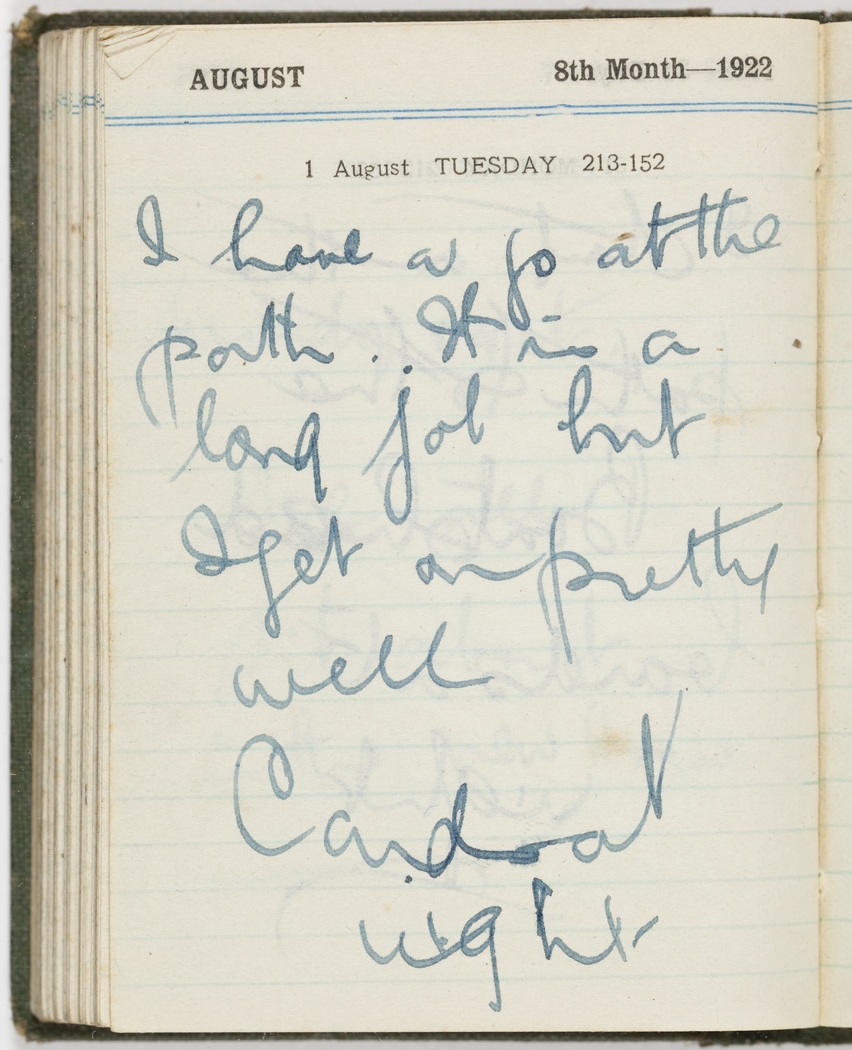 AUGUST 8th Month—1922
1 August TUESDAY 213-152
I have a go at the
path. It is a
long job but
I get on pretty
well
Cards at
night